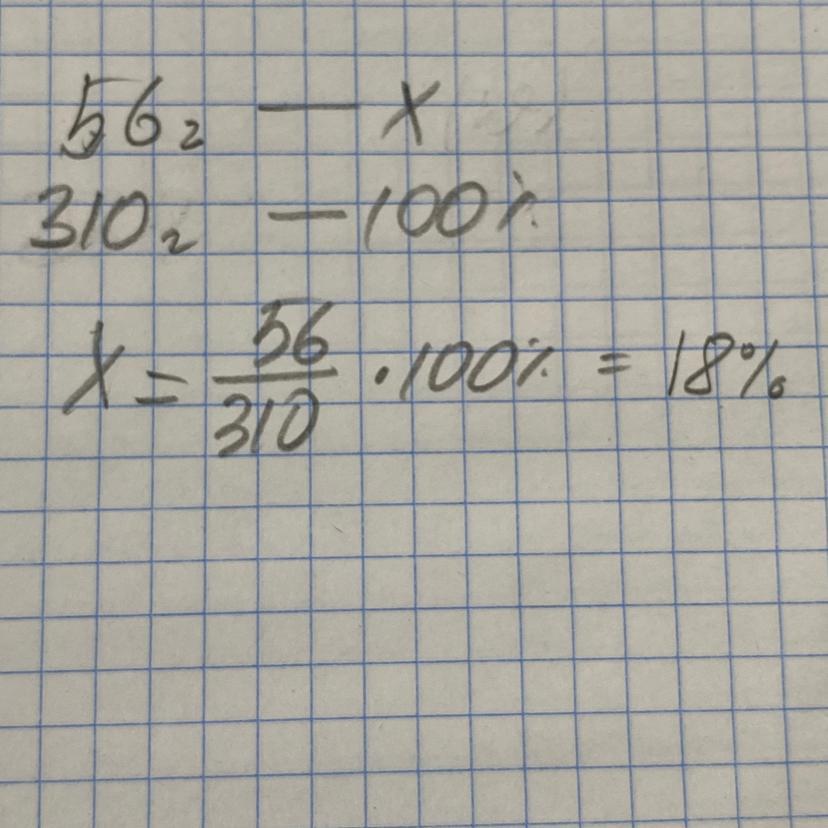 56г — x
310г — 100%
x = 56/310 · 100% = 18%